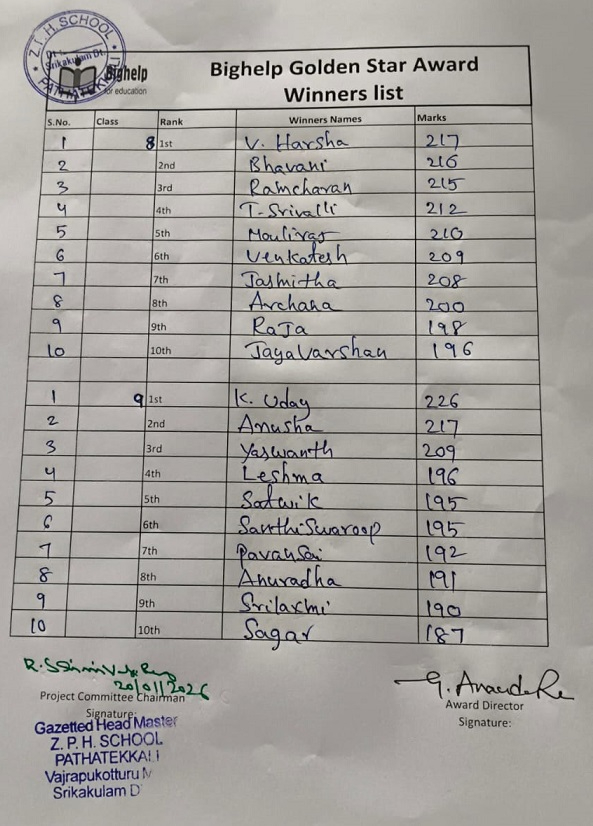 Z.P.H. SCHOOL
Srikakulam Dt.
Bighelp
for education
Bighelp Golden Star Award
Winners list
S.No. Class Rank Winners Names Marks
1 8 1st V. Harsha 217
2 2nd Bhavani 216
3 3rd Ramcharan 215
4 4th T. Srivalli 212
5 5th Mouliraj 210
6 6th Venkatesh 209
7 7th Jasmitha 208
8 8th Archana 200
9 9th RaJa 198
10 10th JayaVarshan 196
1 9 1st K. Uday 226
2 2nd Anusha 217
3 3rd Yaswanth 209
4 4th Leshma 196
5 5th Satwik 195
6 6th SanthiSwaroop 195
7 7th PavanSai 192
8 8th Anuradha 191
9 9th Srilaxmi 190
10 10th Sagar 187
20/01/2026
Project Committee Chairman
Signature:
Gazetted Head Master
Z. P. H. SCHOOL
PATHATEKKALI
Vajrapukotturu M
Srikakulam D
Award Director
Signature: